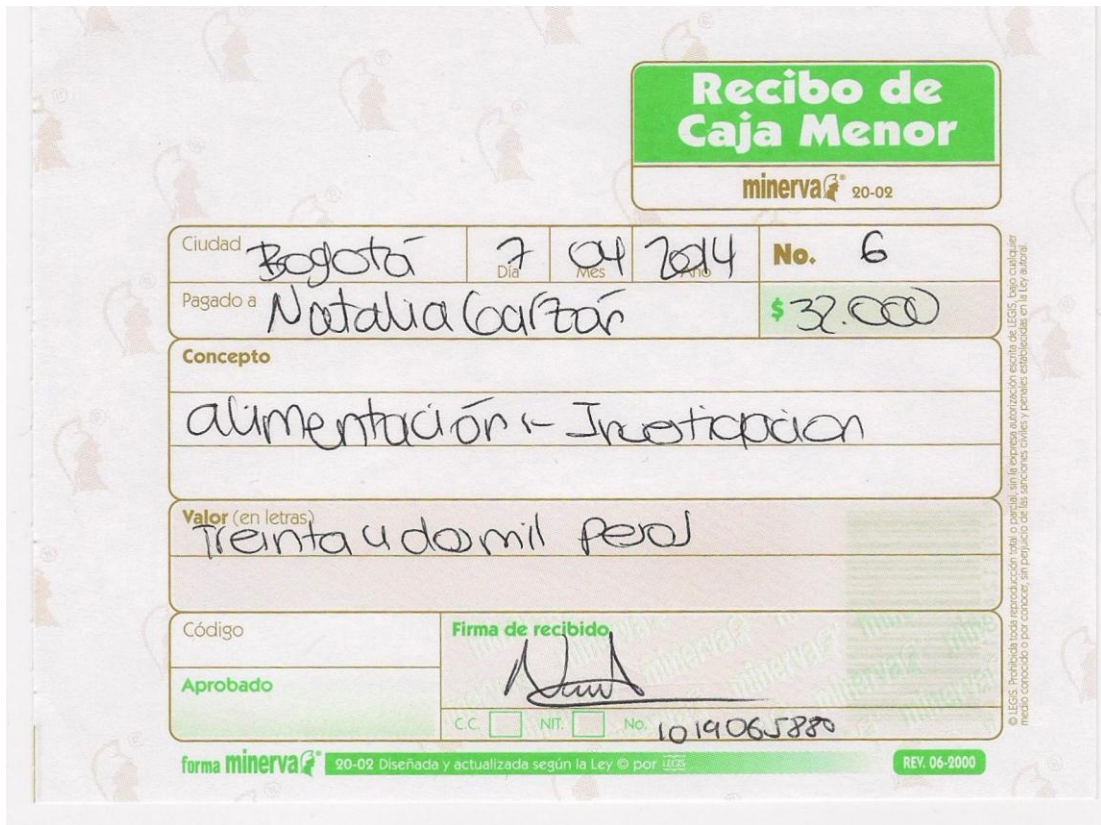 Recibo de
Caja Menor
minerva® 20-02
Ciudad Bogotá Día 7 Mes 04 Año 2014 No. 6
Pagado a Natalia Garzón $ 32.000
Concepto
alimentación - Investigacion
Valor (en letras)
Treinta y dos mil pesos
Código
Firma de recibido
Aprobado
C.C. NIT. No. 1019065880
forma minerva® 20-02 Diseñada y actualizada según la Ley © por LEGIS
REV. 06-2000
© LEGIS. Prohibida toda reproducción total o parcial, sin la expresa autorización escrita de LEGIS, bajo cualquier
medio conocido o por conocer, sin perjuicio de las sanciones civiles y penales establecidas en la Ley autoral.